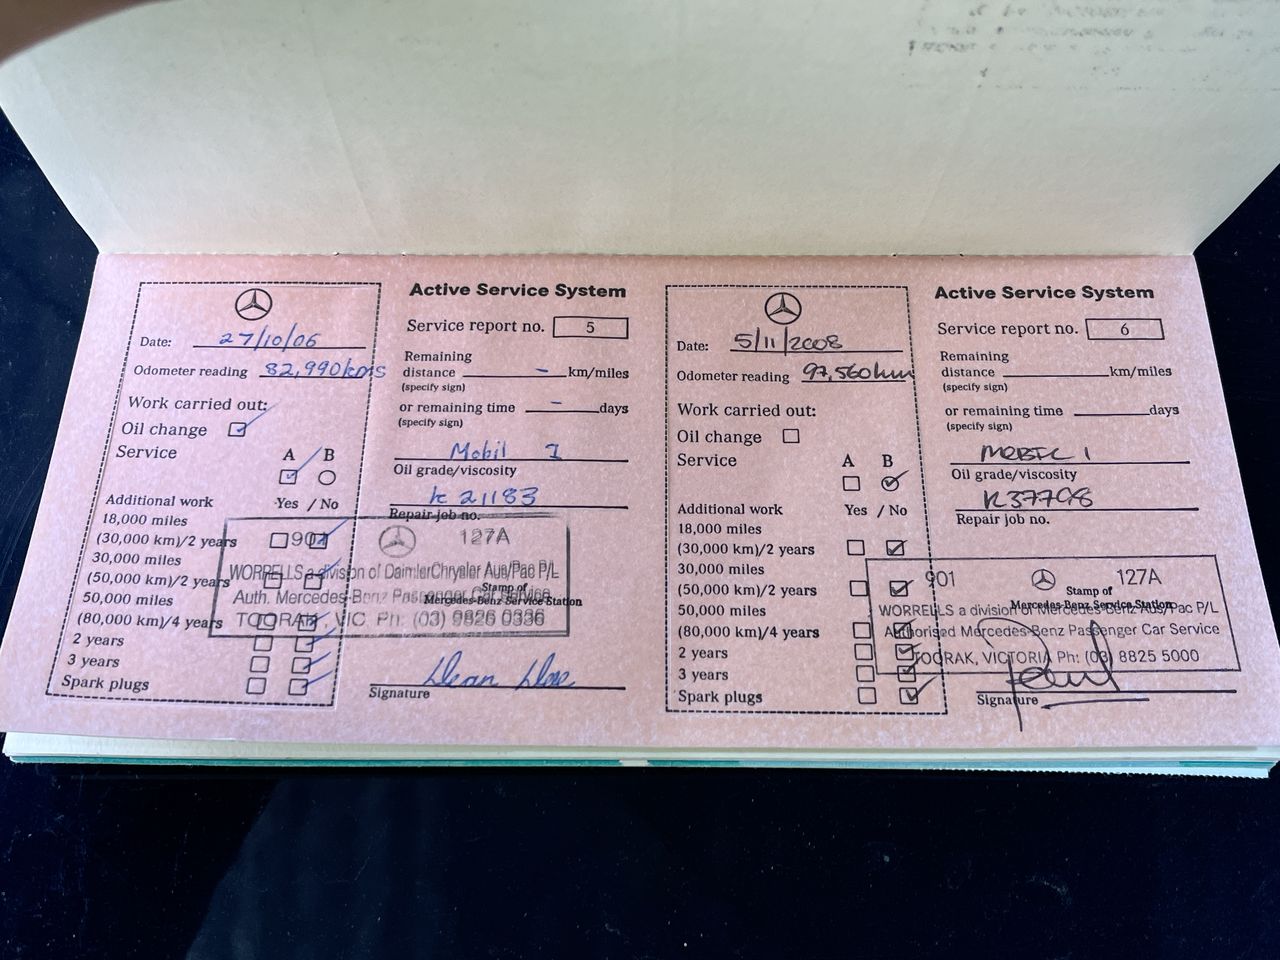 Active Service System
Date: 27/10/06
Service report no. 5
Odometer reading 82,990kms
Remaining
distance - km/miles
(specify sign)
Work carried out:
or remaining time - days
(specify sign)
Oil change
Service
A B
Mobil 1
Oil grade/viscosity
Additional work
Yes / No
K 21183
Repair job no.
18,000 miles
(30,000 km)/2 years
30,000 miles
(50,000 km)/2 years
50,000 miles
(80,000 km)/4 years
2 years
3 years
Spark plugs
901 127A
WORRELLS a division of DaimlerChrysler Aus/Pac P/L
Auth. Mercedes-Benz Passenger Car Service
TOORAK, VIC. Ph: (03) 9826 0336
Stamp of
Mercedes-Benz Service Station
Signature
Active Service System
Date: 5/11/2008
Service report no. 6
Odometer reading 97,560km
Remaining
distance km/miles
(specify sign)
Work carried out:
or remaining time days
(specify sign)
Oil change
Service
A B
MOBIL 1
Oil grade/viscosity
Additional work
Yes / No
K37798
Repair job no.
18,000 miles
(30,000 km)/2 years
30,000 miles
(50,000 km)/2 years
50,000 miles
(80,000 km)/4 years
2 years
3 years
Spark plugs
901 127A
Stamp of
Mercedes-Benz Service Station
WORRELLS a division of Mercedes-Benz Aus/Pac P/L
Authorised Mercedes-Benz Passenger Car Service
TOORAK, VICTORIA Ph: (03) 8825 5000
Signature